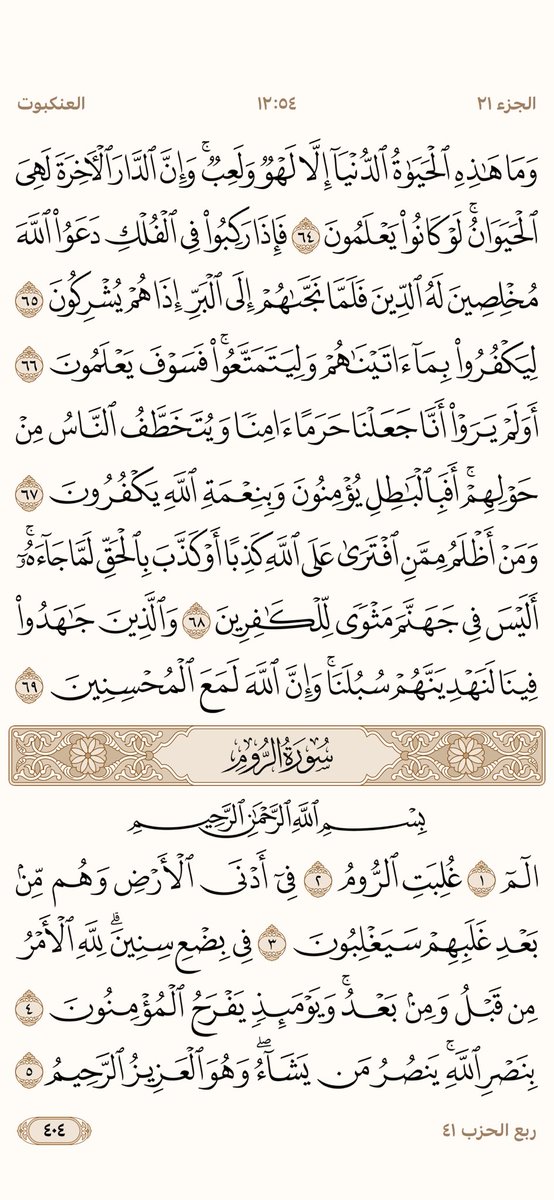 الجزء ٢١ ١٢:٥٤ العنكبوت
وَمَا هَٰذِهِ ٱلْحَيَوٰةُ ٱلدُّنْيَآ إِلَّا لَهْوٌ وَلَعِبٌ ۚ وَإِنَّ ٱلدَّارَ ٱلْـَٔاخِرَةَ لَهِىَ
ٱلْحَيَوَانُ ۚ لَوْ كَانُوا۟ يَعْلَمُونَ ٦٤ فَإِذَا رَكِبُوا۟ فِى ٱلْفُلْكِ دَعَوُا۟ ٱللَّهَ
مُخْلِصِينَ لَهُ ٱلدِّينَ فَلَمَّا نَجَّىٰهُمْ إِلَى ٱلْبَرِّ إِذَا هُمْ يُشْرِكُونَ ٦٥
لِيَكْفُرُوا۟ بِمَآ ءَاتَيْنَٰهُمْ وَلِيَتَمَتَّعُوا۟ ۚ فَسَوْفَ يَعْلَمُونَ ٦٦
أَوَلَمْ يَرَوْا۟ أَنَّا جَعَلْنَا حَرَمًا ءَامِنًا وَيُتَخَطَّفُ ٱلنَّاسُ مِنْ
حَوْلِهِمْ ۚ أَفَبِٱلْبَٰطِلِ يُؤْمِنُونَ وَبِنِعْمَةِ ٱللَّهِ يَكْفُرُونَ ٦٧
وَمَنْ أَظْلَمُ مِمَّنِ ٱفْتَرَىٰ عَلَى ٱللَّهِ كَذِبًا أَوْ كَذَّبَ بِٱلْحَقِّ لَمَّا جَآءَهُۥٓ ۚ
أَلَيْسَ فِى جَهَنَّمَ مَثْوًى لِّلْكَٰفِرِينَ ٦٨ وَٱلَّذِينَ جَٰهَدُوا۟
فِينَا لَنَهْدِيَنَّهُمْ سُبُلَنَا ۚ وَإِنَّ ٱللَّهَ لَمَعَ ٱلْمُحْسِنِينَ ٦٩
سُورَةُ الرُّومِ
بِسْمِ ٱللَّهِ ٱلرَّحْمَٰنِ ٱلرَّحِيمِ
الٓمٓ ١ غُلِبَتِ ٱلرُّومُ ٢ فِىٓ أَدْنَى ٱلْأَرْضِ وَهُم مِّنۢ
بَعْدِ غَلَبِهِمْ سَيَغْلِبُونَ ٣ فِى بِضْعِ سِنِينَ ۗ لِلَّهِ ٱلْأَمْرُ
مِن قَبْلُ وَمِنۢ بَعْدُ ۚ وَيَوْمَئِذٍ يَفْرَحُ ٱلْمُؤْمِنُونَ ٤
بِنَصْرِ ٱللَّهِ ۚ يَنصُرُ مَن يَشَآءُ ۖ وَهُوَ ٱلْعَزِيزُ ٱلرَّحِيمُ ٥
ربع الحزب ٤١ ٤٠٤